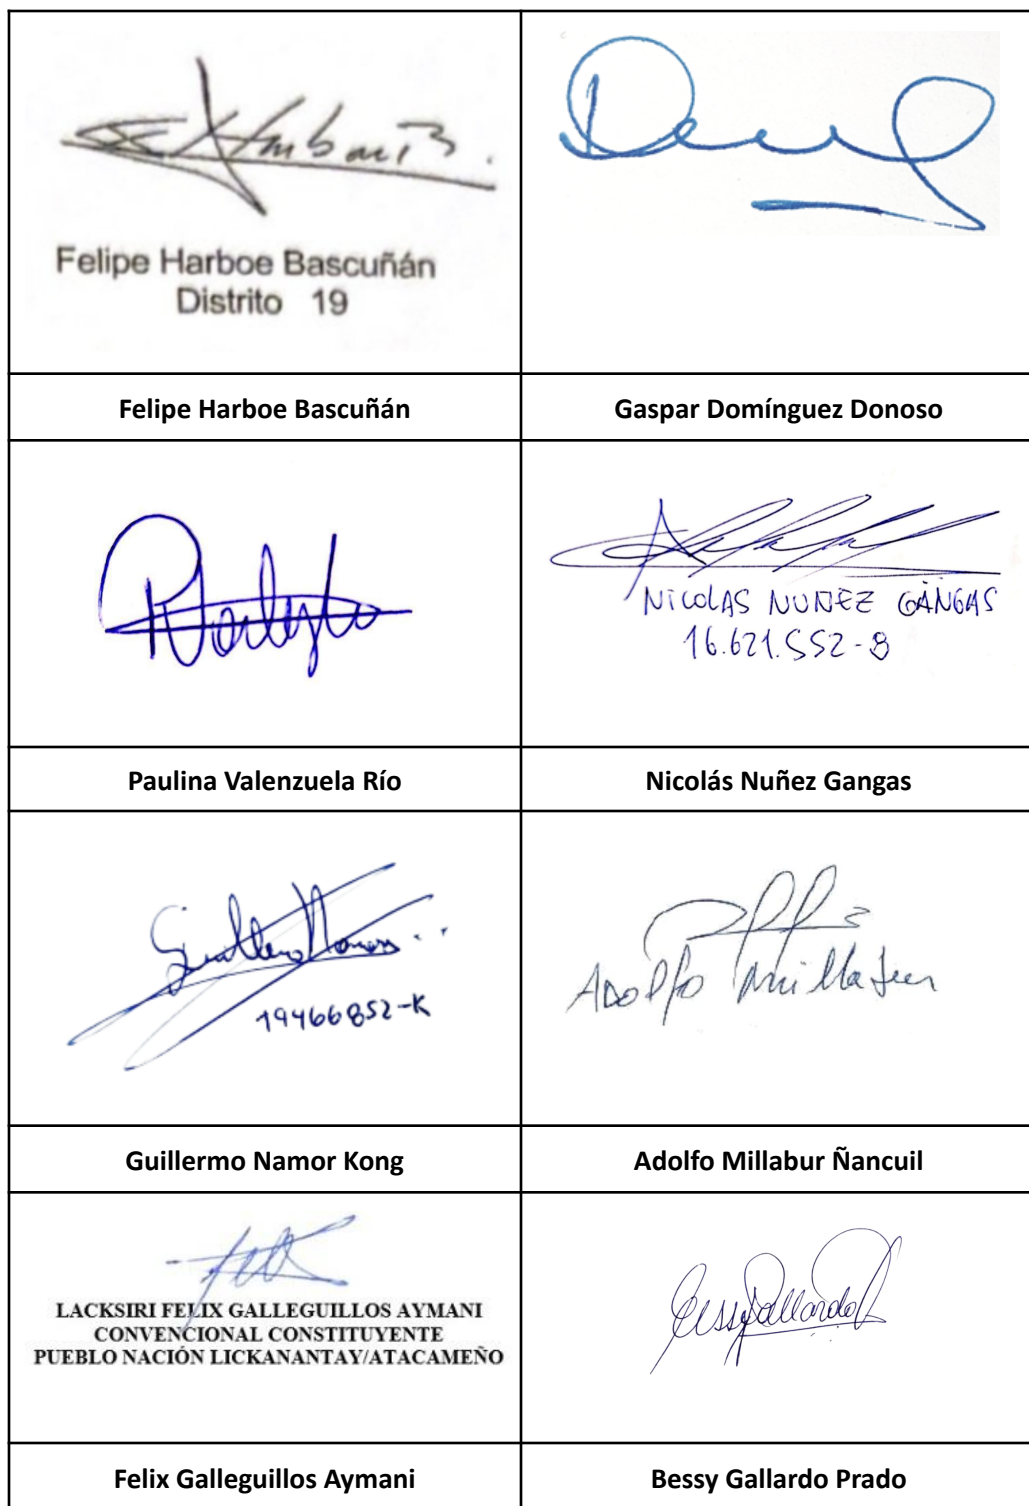 Felipe Harboe Bascuñán
Distrito 19
Felipe Harboe Bascuñán
Gaspar Domínguez Donoso
NICOLAS NUÑEZ GANGAS
16.621.552-8
Paulina Valenzuela Río
Nicolás Nuñez Gangas
Guillermo Namor
19466852-K
Adolfo Millabur
Guillermo Namor Kong
Adolfo Millabur Ñancuil
LACKSIRI FELIX GALLEGUILLOS AYMANI
CONVENCIONAL CONSTITUYENTE
PUEBLO NACIÓN LICKANANTAY/ATACAMEÑO
Bessy Gallardo
Felix Galleguillos Aymani
Bessy Gallardo Prado